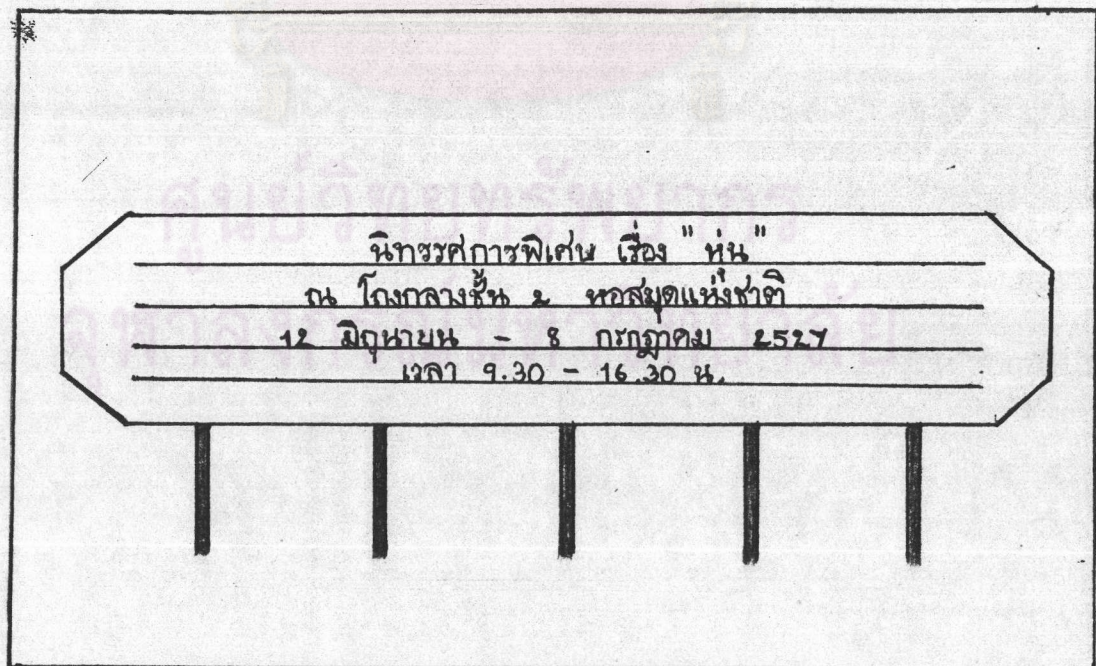 ศูนย์วิทยทรัพยากร
จุฬาลงกรณ์มหาวิทยาลัย
นิทรรศการพิเศษ เรื่อง "หุ่น"
ณ โถงกลางชั้น 2 หอสมุดแห่งชาติ
12 มิถุนายน - 8 กรกฎาคม 2527
เวลา 9.30 - 16.30 น.